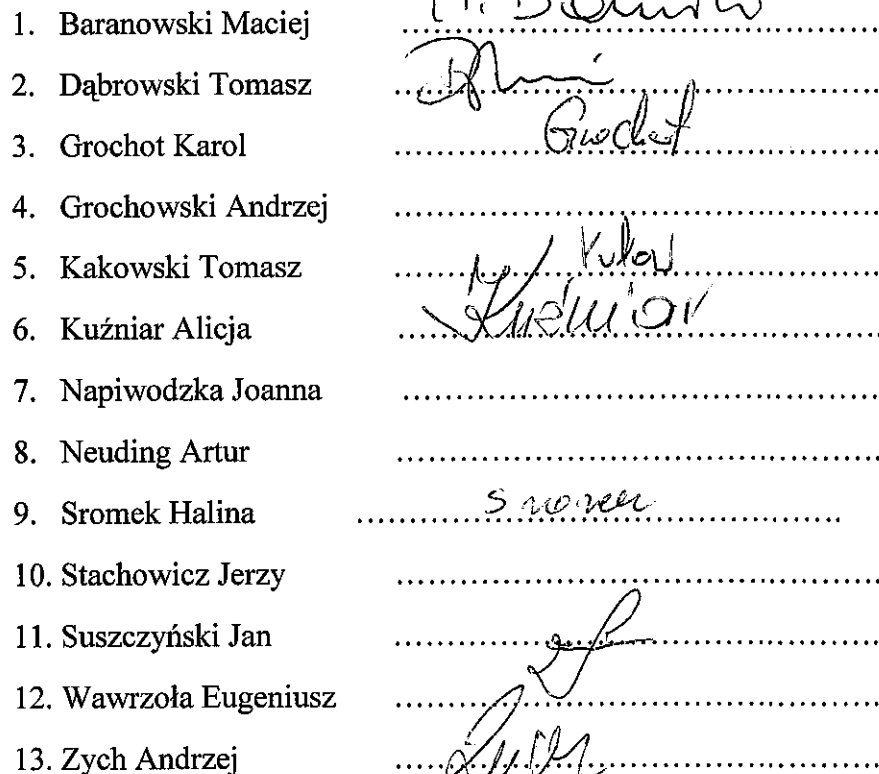 1. Baranowski Maciej ........................................
2. Dąbrowski Tomasz ........................................
3. Grochot Karol ........................................ Grochot
4. Grochowski Andrzej ........................................
5. Kakowski Tomasz ........................................
6. Kuźniar Alicja ........................................ Kuźniar
7. Napiwodzka Joanna ........................................
8. Neuding Artur ........................................
9. Sromek Halina ........................................
10. Stachowicz Jerzy ........................................
11. Suszczyński Jan ........................................
12. Wawrzoła Eugeniusz ........................................
13. Zych Andrzej ........................................